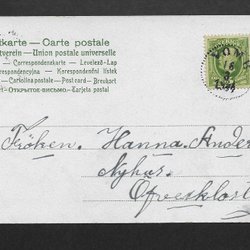 tkarte — Carte postale
tverein — Union postale universelle
— Correspondenzkarte — Levelező-Lap
respondencyjna — Korespondenční lístek
— Cartolina postale — Post card — Brevkort
ТКРЫТОЕ ПИСЬМО — Tarjeta postal
Fröken. Hanna. Ander
Nyhus.
Öfverklost